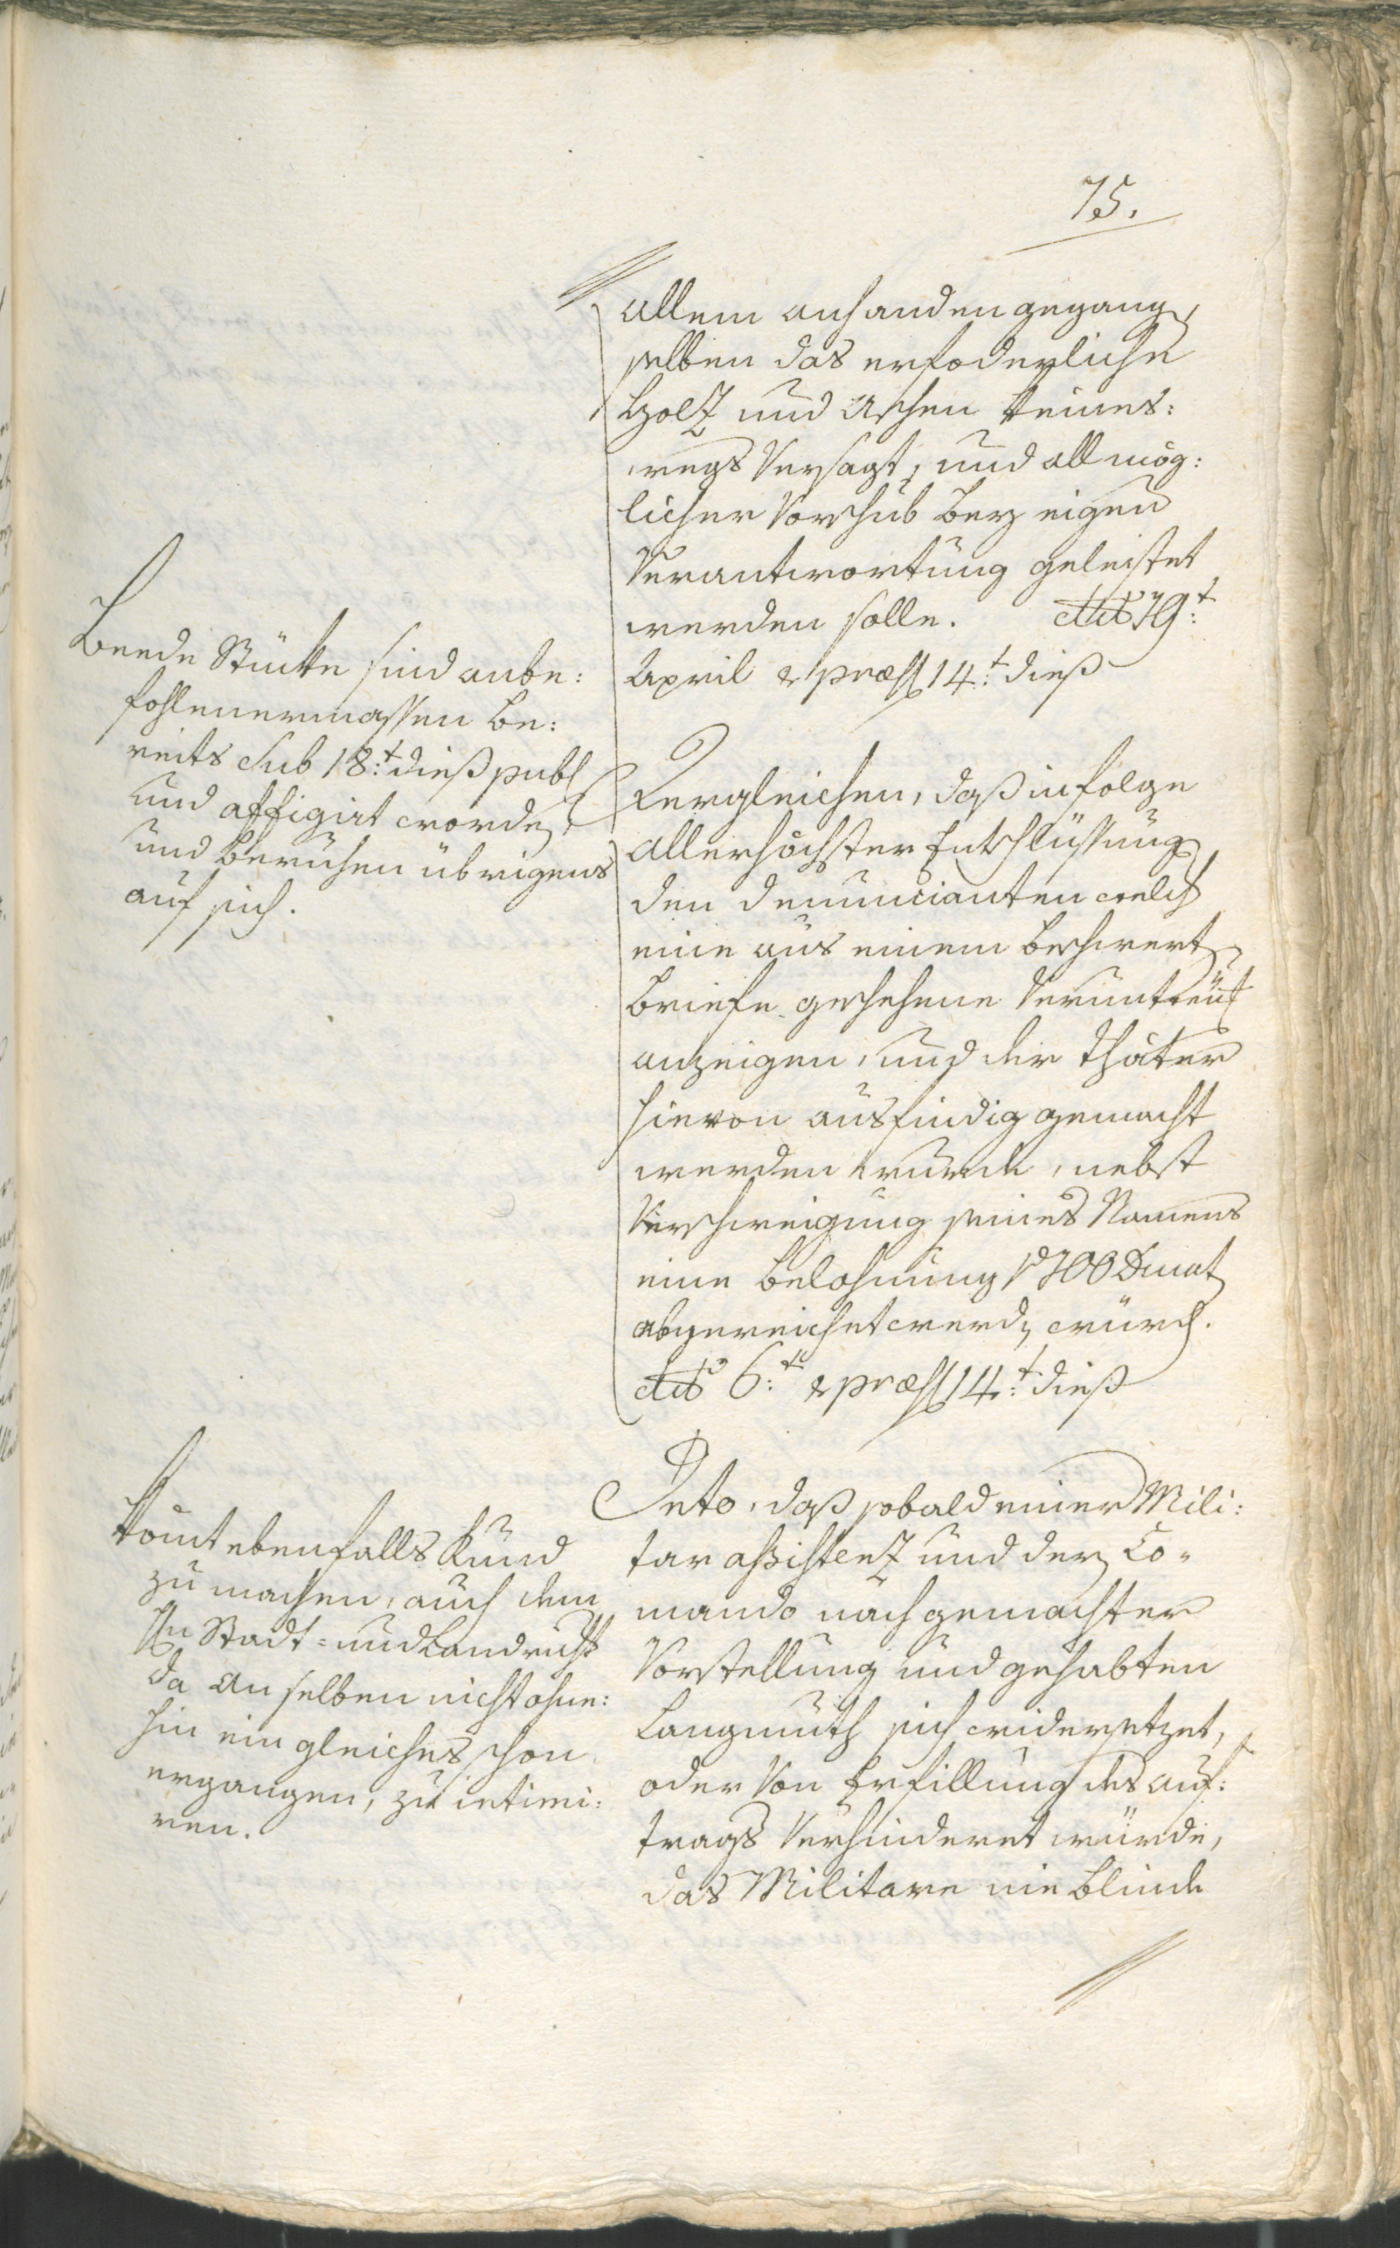 75.
allem anhanden gegangen
selben das erfoderliche
Holz und Aschen keines:
wegs versagt, und all mög:
licher Vorschub bey eigen
Verantwortung geleistet
werden solle. ddto 19t
April & præs 14t: dieß
Beede Stücke sind anbe:
fohlenermassen be:
reits sub 18t: dieß publ
und affigirt worden
und beruhen übrigens
auf sich.
Dergleichen, daß infolge
allerhöchster Entschlüssung
den denuncianten welch
eine aus einem beschwerten
Briefe geschehene Veruntreüt
anzeigen, und der Thäter
hievon ausfindig gemacht
werden wurde, nebst
Verschweigung seines Namens
eine Belohnung 100 Ducat
abgereichet werden würd.
ddto 6t: & præs 14t: dieß
Deto, daß sobald einer Mili:
tar assistenz und der Co-
mando nach gemachter
Vorstellung und gehabten
Langmuth sich widersetzet,
oder von Erfillung des auf:
trags verhinderet würde,
das Militare nie blinde
Komt ebenfalls kund
zu machen, auch dem
Hn Stadt- und Landricht
da an selben nicht ohne:
hin ein gleiches schon
ergangen, zu intimi:
ren.